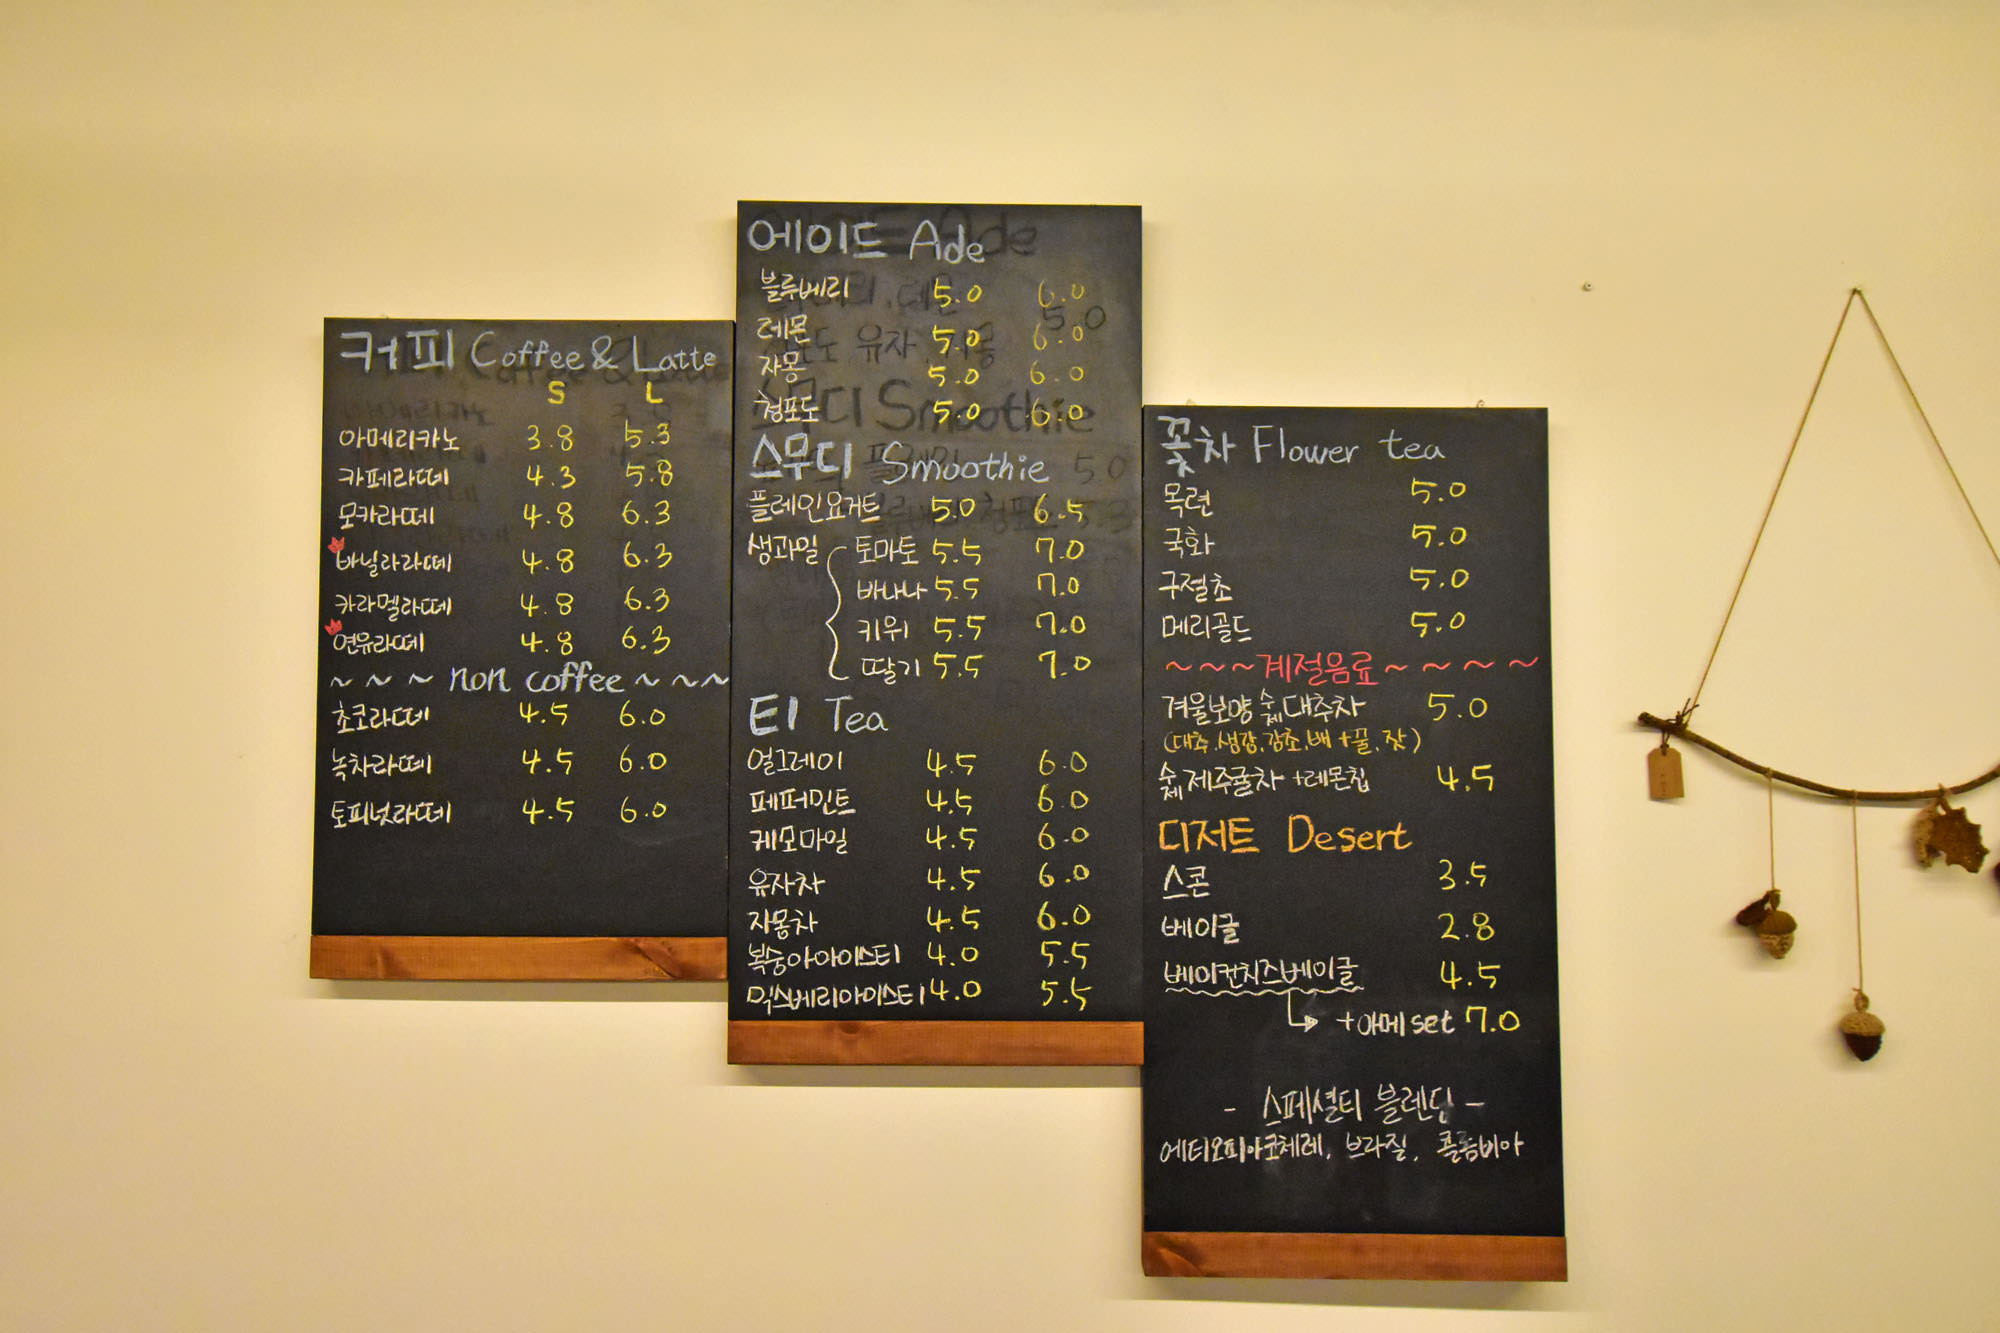 커피 Coffee & Latte
S L
아메리카노 3.8 5.3
카페라떼 4.3 5.8
모카라떼 4.8 6.3
바닐라라떼 4.8 6.3
카라멜라떼 4.8 6.3
연유라떼 4.8 6.3
~ ~ ~ non coffee ~ ~ ~
초코라떼 4.5 6.0
녹차라떼 4.5 6.0
토피넛라떼 4.5 6.0
에이드 Ade
블루베리 5.0 6.0
레몬 5.0 6.0
자몽 5.0 6.0
청포도 5.0 6.0
스무디 Smoothie
플레인요거트 5.0 6.5
생과일 토마토 5.5 7.0
바나나 5.5 7.0
키위 5.5 7.0
딸기 5.5 7.0
티 Tea
얼그레이 4.5 6.0
페퍼민트 4.5 6.0
케모마일 4.5 6.0
유자차 4.5 6.0
자몽차 4.5 6.0
복숭아아이스티 4.0 5.5
믹스베리아이스티 4.0 5.5
꽃차 Flower tea
목련 5.0
국화 5.0
구절초 5.0
메리골드 5.0
~ ~ ~ ~ 계절음료 ~ ~ ~ ~ ~
겨울보양 수제 대추차 5.0
(대추,생강,감초,배+꿀,잣)
수제 제주귤차 +레몬칩 4.5
디저트 Desert
스콘 3.5
베이글 2.8
베이컨치즈베이글 4.5
+아메 set 7.0
- 스페셜티 블렌딩 -
에티오피아코체레, 브라질, 콜롬비아